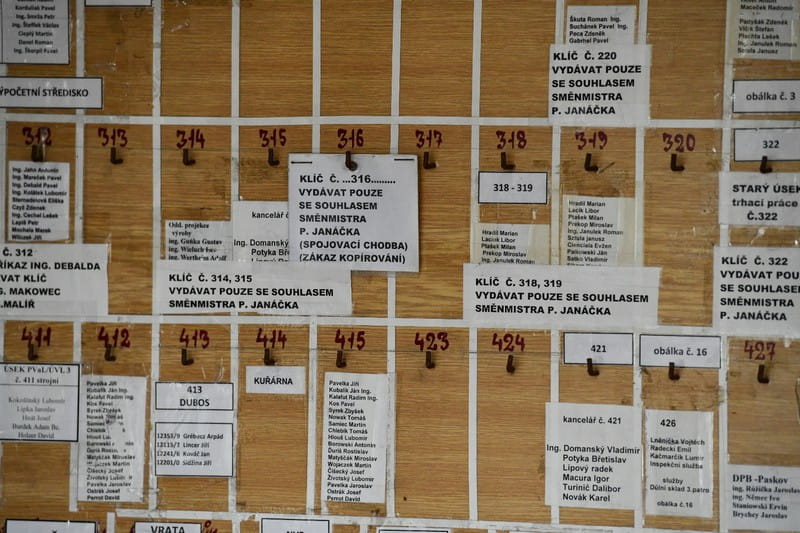 Korduliak Pavel
ing. Smrža Petr
Ing. Šteffek Václav
Cieplý Martin
Danel Roman
Ing. Škorpil Pavel
VÝPOČETNÍ STŘEDISKO
Škuta Roman Ing.
Suchánek Pavel Ing.
Peca Zdeněk
Gabrhel Pavel
KLÍČ Č. 220
VYDÁVAT POUZE
SE SOUHLASEM
SMĚNMISTRA
P. JANÁČKA
Maceček Radomír
Vlčík Štefan
Plachta Lešek
Ing. Janulek Roman
Sztula Janusz
obálka č. 3
312
313
314
315
316
317
318
319
320
322
Ing. Jahn Antonín
Ing. Mareček Pavel
Ing. Debald Pavel
Ing. Kolátek Lubomír
Czyž Zdenek
Ing. Cechel Lešek
Lapiš Petr
Odd. projekce
výroby
ing. Guňka Gustav
kancelář č
Ing. Domanský
Potyka Bře
KLÍČ Č. ...316.........
VYDÁVAT POUZE
SE SOUHLASEM
SMĚNMISTRA
P. JANÁČKA
(SPOJOVACÍ CHODBA)
(ZÁKAZ KOPÍROVÁNÍ)
318 - 319
Hradil Marian
Lacik Libor
Ptašek Milan
Prekop Miroslav
Ing. Janulek Roman
Hradil Marian
Lacik Libor
Ptašek Milan
Prekop Miroslav
Ing. Janulek Roman
Sztula Janusz
Cienciala Evžen
Paikowský Ján
Satko Vladimír
STARÝ ÚSEK
trhací práce
Č.322
Č. 312
ŘÍKAZ ING. DEBALDA
VAT KLÍČ
G. MAKOWEC
MALÍŘ
KLÍČ Č. 314, 315
VYDÁVAT POUZE SE SOUHLASEM
SMĚNMISTRA P. JANÁČKA
KLÍČ Č. 318, 319
VYDÁVAT POUZE SE SOUHLASEM
SMĚNMISTRA P. JANÁČKA
KLÍČ Č. 322
VYDÁVAT POUZE
SE SOUHLASEM
SMĚNMISTRA
P. JANÁČKA
411
412
413
414
415
423
424
421
obálka č. 16
427
ÚSEK PVaL/ÚVL 3
č. 411 strojní
Kokoličský Lubomír
Lipka Jaroslav
Hnát Josef
Burdek Adam Bc.
Holzer David
Pavelka Jiří
Kubalík Ján Ing.
Kalafut Radim Ing.
Kos Pavel
Syrek Zbyšek
Nowak Tomáš
Samiec Martin
Matyščák Miroslav
Wojaczek Martin
Čisecký Josef
Životský Lubomír
Pavelka Jaroslav
Ostrák Josef
Perrot David
413
DUBOS
12353/9 Grébecz Arpád
12115/7 Lincer Jiří
12241/6 Kováč Jan
12201/0 Sidžina Jiří
KUŘÁRNA
Pavelka Jiří
Kubalík Ján Ing.
Kalafut Radim Ing.
Kos Pavel
Syrek Zbyšek
Nowak Tomáš
Samiec Martin
Chlebík Tomáš
Hloud Lubomír
Borowski Antonín
Duriš Rostislav
Matyščák Miroslav
Wojaczek Martin
Čisecký Josef
Pavelka Jaroslav
Ostrák Josef
Perrot David
kancelář č. 421
Ing. Domanský Vladimír
Potyka Břetislav
Lipový radek
Macura Igor
Turinič Dalibor
Novák Karel
426
Lněnička Vojtěch
Radecki Emil
Kačmarčik Lumír
Inspekční služba
služby
Důlní sklad 3.patro
obálka č.16
DPB -Paskov
ing. Růžička Jaroslav
ing. Němec Ivo
Staniowski Ervin
Brychcy Jaroslav
VRATA